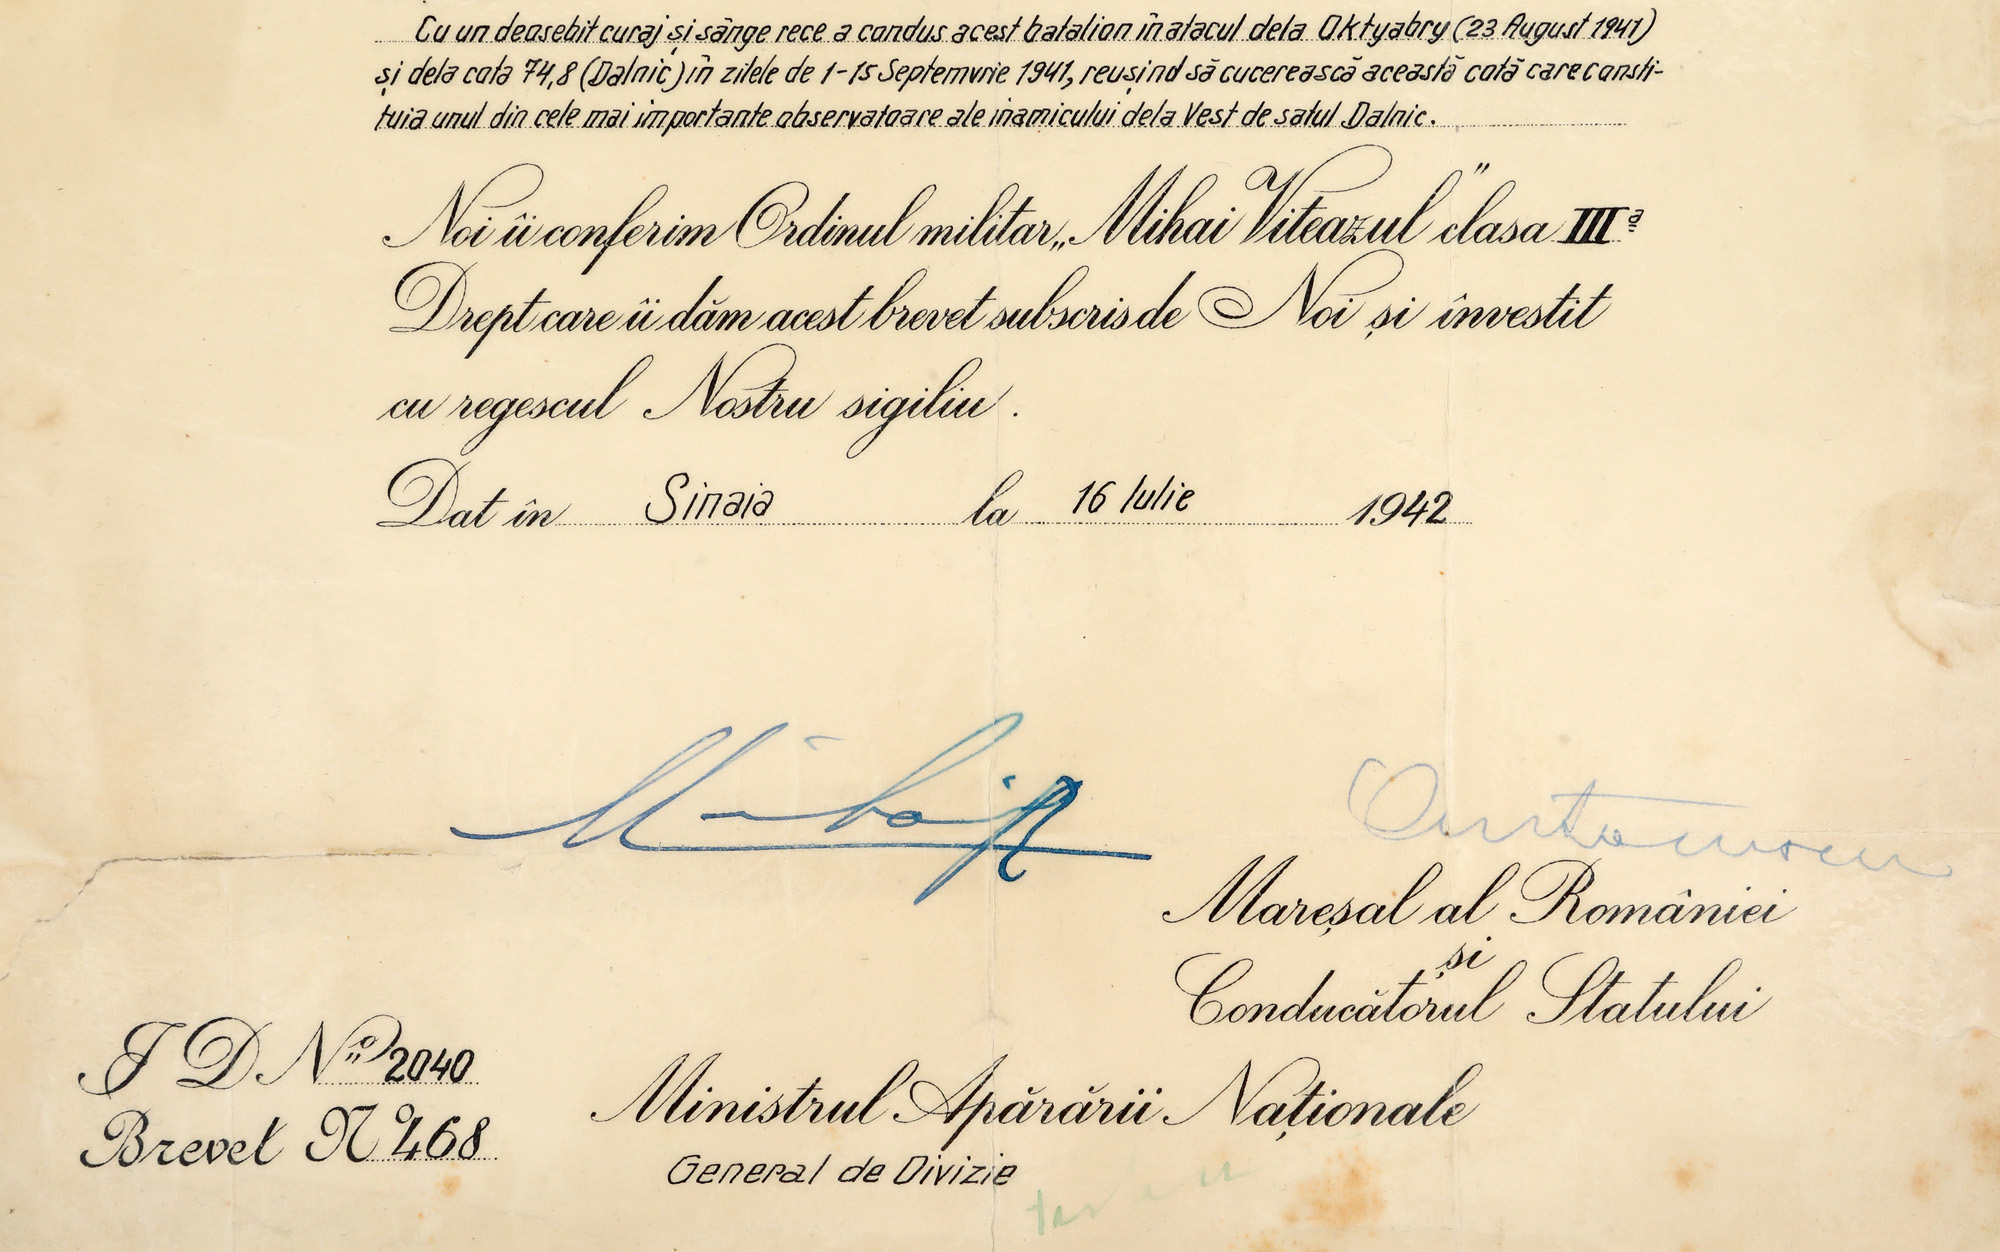 Cu un deosebit curaj și sânge rece a condus acest batalion în atacul dela Oktyabry (23 August 1941)
și dela cota 74,8 (Dalnic) în zilele de 1-15 Septemvrie 1941, reușind să cucerească această cotă care consti-
tuia unul din cele mai importante observatoare ale inamicului dela Vest de satul Dalnic.
Noi îi conferim Ordinul militar „Mihai Viteazul" clasa III a
Drept care îi dăm acest brevet subscris de Noi și învestit
cu regescul Nostru sigiliu.
Dat în Sinaia la 16 Iulie 1942
Mihai R
Antonescu
Mareșal al României
și
Conducătorul Statului
I D. No 2040
Brevet No 468
Ministrul Apărării Naționale
General de Divizie